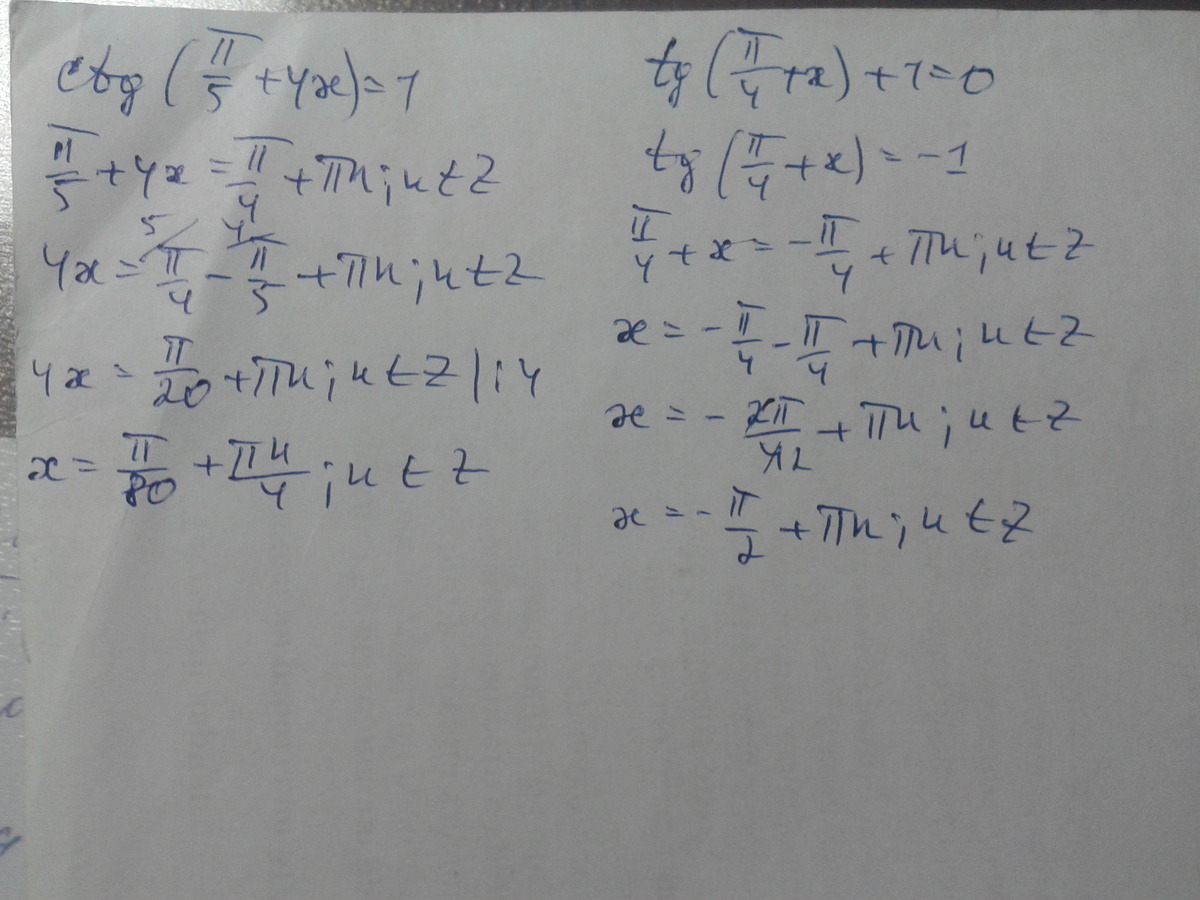 ctg(π/5 + 4x) = 1
π/5 + 4x = π/4 + πn; n ∈ Z
4x = π/4 ⁵ - π/5 ⁴ + πn; n ∈ Z
4x = π/20 + πn; n ∈ Z |:4
x = π/80 + πn/4; n ∈ Z
tg(π/4 + x) + 1 = 0
tg(π/4 + x) = -1
π/4 + x = -π/4 + πn; n ∈ Z
x = -π/4 - π/4 + πn; n ∈ Z
x = -2π/4 2 + πn; n ∈ Z
x = -π/2 + πn; n ∈ Z